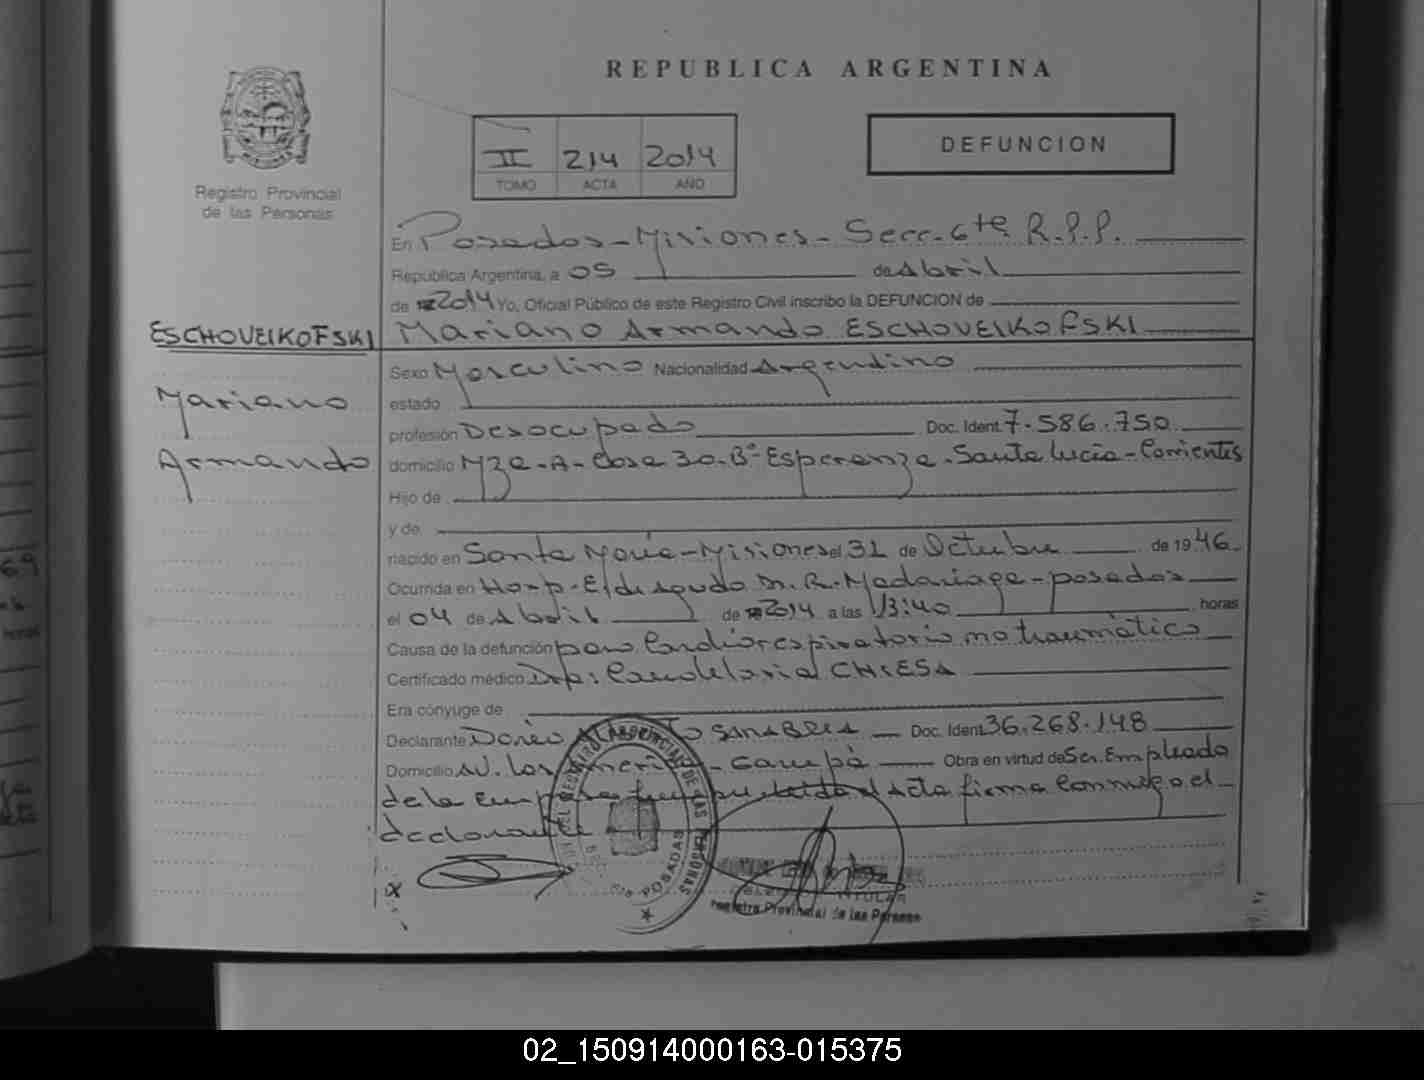 REPUBLICA ARGENTINA
II 214 2014
TOMO ACTA AÑO
DEFUNCION
Registro Provincial
de las Personas
En Posadas - Misiones - Secc. 6ta R.P.P.
República Argentina, a 05 de Abril
de 2014 Yo, Oficial Público de este Registro Civil inscribo la DEFUNCION de
ESCHOVEIKOFSKI
Mariano
Armando
Mariano Armando ESCHOVEIKOFSKI
Sexo Masculino Nacionalidad Argentino
estado
profesión Desocupado Doc. Ident. 7.586.750
domicilio Mza - A - Casa 30 - Bº Esperanza - Santa Lucia - Corrientes
Hijo de
y de
nacido en Santa María - Misiones el 31 de Octubre de 1946
Ocurrida en Hosp. El de Agudo Dr. R. Madariaga - posadas
el 04 de Abril de 2014 a las 13:40 horas
Causa de la defunción paro Cardiorespiratorio no traumático
Certificado médico Dra: Candelaria CHIESA
Era cónyuge de
Declarante Darío SANABRIA Doc. Ident 36.268.148
Domicilio Av. Las - Garupá Obra en virtud de Ser Empleado
de la Empresa leida el Acta firma Conmigo el
declarante
REGISTRO PROVINCIAL DE LAS PERSONAS
POSADAS
TITULAR
Registro Provincial de las Personas
02_150914000163-015375